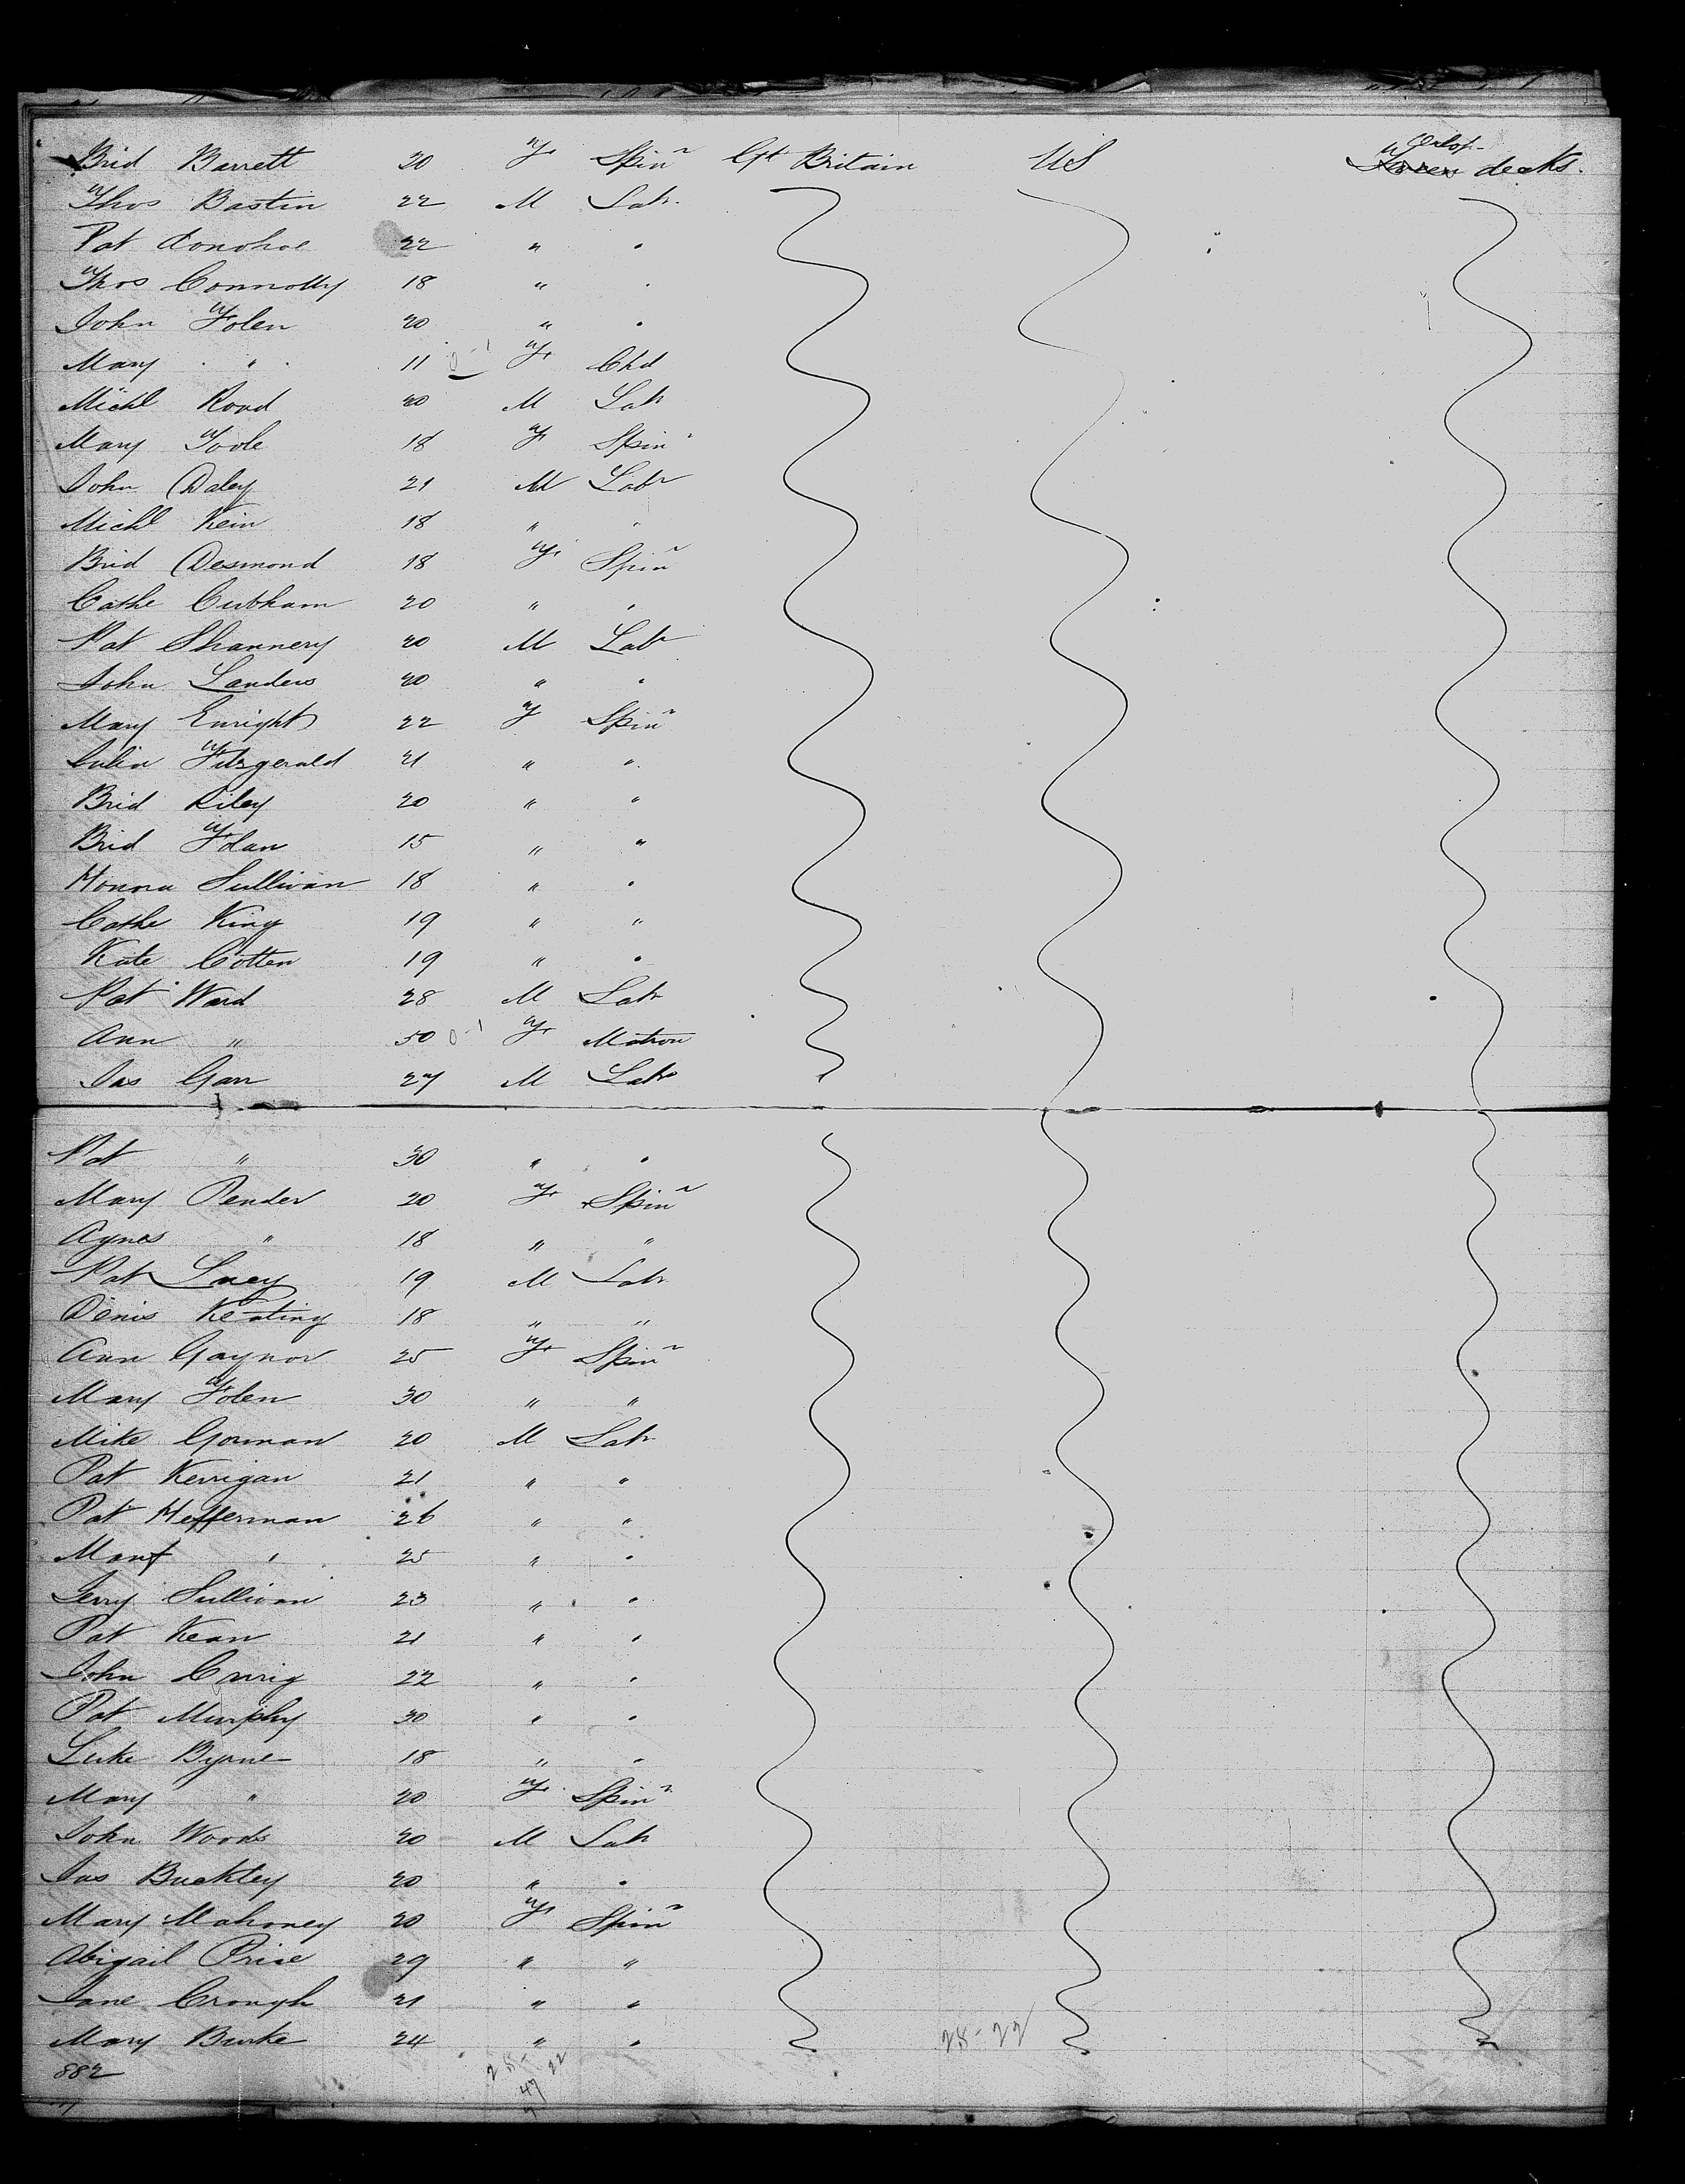 Brid Barrett 20 F Spinr Gt Britain US Orlop Lower decks.
Thos Bastin 22 M Labr
Pat Donohoe 22 " "
Thos Connolly 18 " "
John Folen 20 " "
Mary " 11 0-1 F Chd
Michl Road 20 M Labr
Mary Toole 18 F Spinr
John Daley 21 M Labr
Michl Kein 18 " "
Brid Desmond 18 F Spinr
Cathe Cubham 20 " "
Pat Shannery 20 M Labr
John Landers 20 " "
Mary Enright 22 F Spinr
Julia Fitzgerald 21 " "
Brid Riley 20 " "
Brid Folan 15 " "
Honora Sullivan 18 " "
Cathe King 19 " "
Kate Cotten 19 " "
Pat Ward 28 M Labr
Ann " 50 0-1 F Matron
Jas Gan 27 M Labr
Pat " 30 " "
Mary Pender 20 F Spinr
Agnes " 18 " "
Pat Lacy 19 M Labr
Denis Keating 18 " "
Ann Gaynor 25 F Spinr
Mary Folen 30 " "
Mike Gorman 20 M Labr
Pat Kerrigan 21 " "
Pat Hefferman 26 " "
" 25 " "
Jerry Sullivan 23 " "
Pat Kean 21 " "
John 22 " "
Pat Murphy 30 " "
Luke Byrne 18 " "
Mary " 20 F Spinr
John Woods 20 M Labr
Jas Buckley 20 " "
Mary Mahoney 20 F Spinr
Abigail Price 29 " "
Jane Crough 21 " "
Mary Burke 24 " " 25-22
882 25-22
47